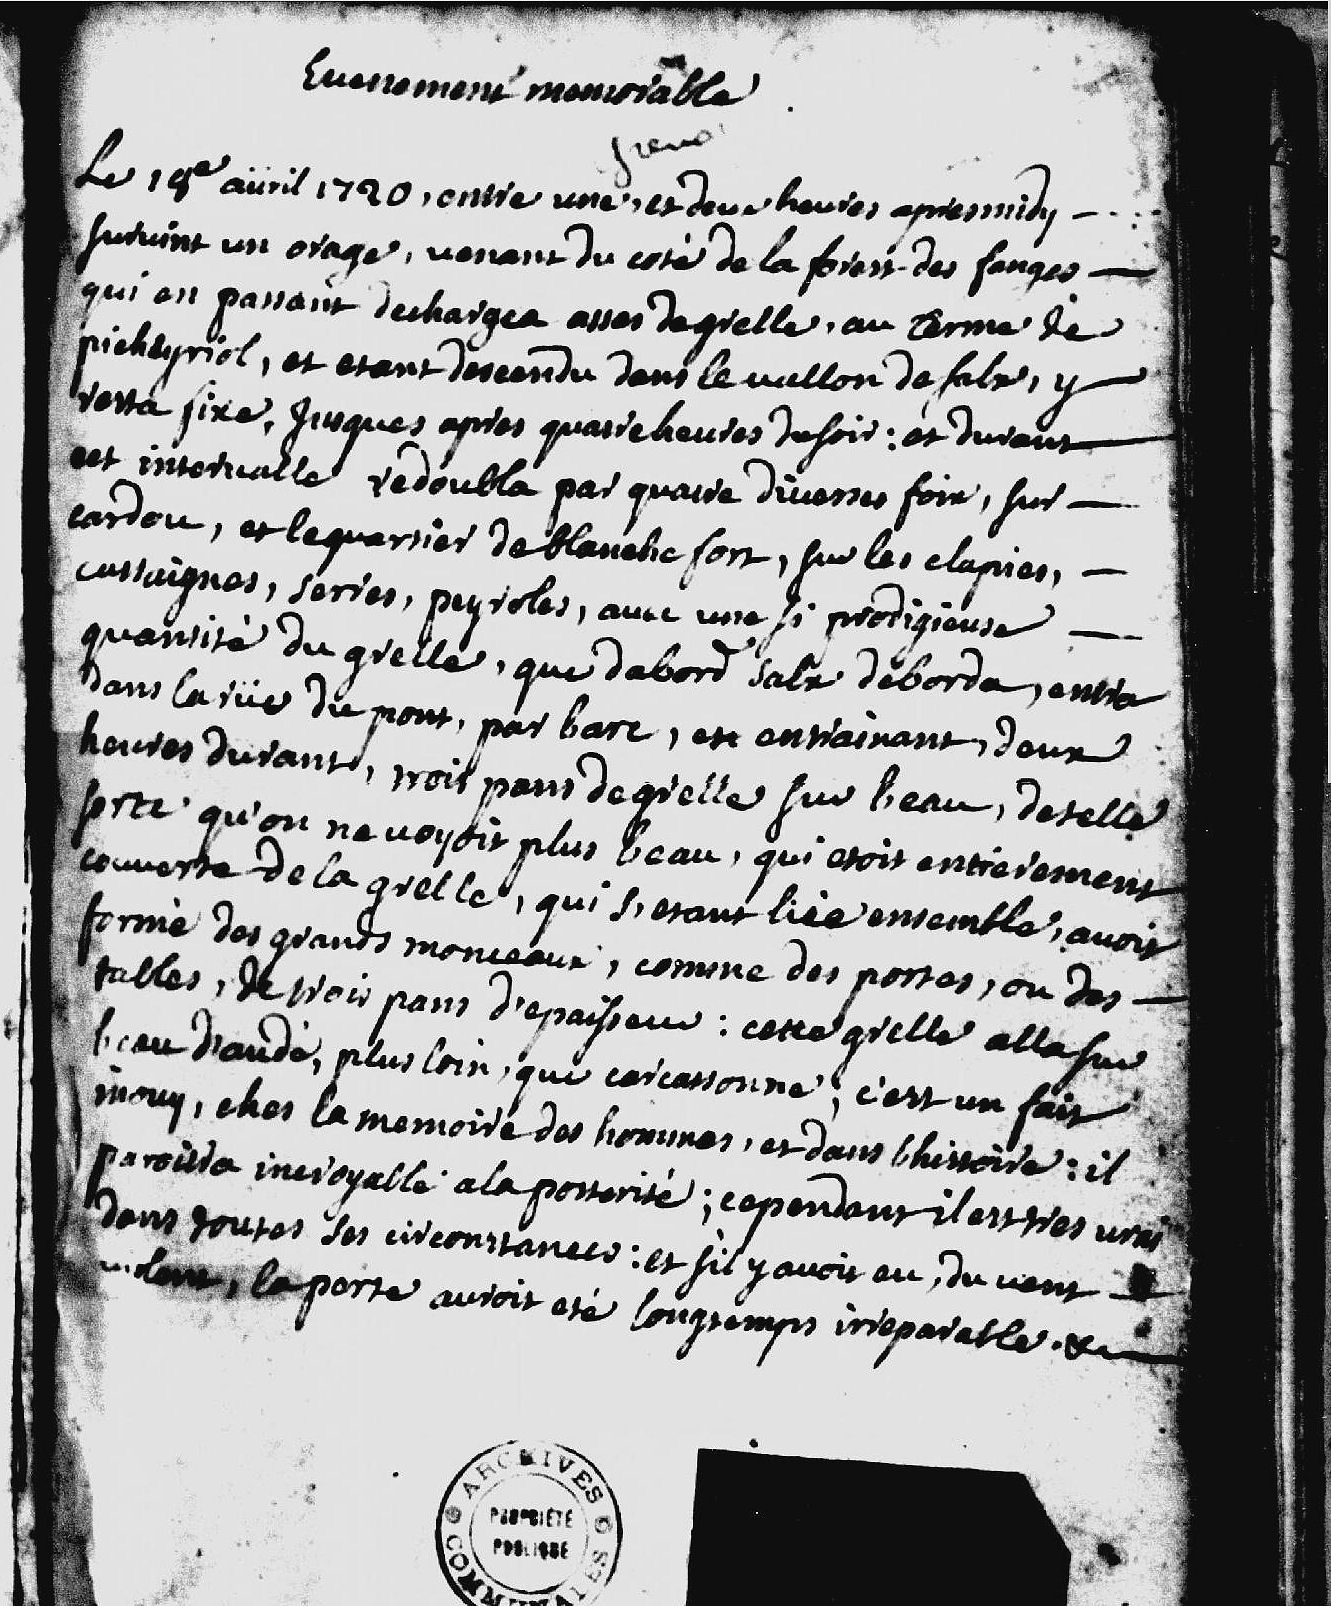 Evenement memorable
Le 18e auril 1720, entre une, et deux heures apresmidy
suruint un orage, uenant du coté de la forest des fanges
qui en passant dechargea asses de grelle, au terme de
et etant descendu dans le uallon de salx, y
resta fixe, Jusques apres quatre heures du soir : et durant
cet interualle redoubla par quatre diuerses foix, sur
cardou, et le quartier de blanche fort, sur les clapies,
cassaignes, serres, peyroles, auec une si prodigieuse
quantité du grelle, que dabord salx deborda, entra
dans la rüe du pont, par barc, et entrainant, deux
heures durant, trois pans de grelle sur leau, de telle
sorte qu'on ne uoyoit plus leau, qui etoit entierement
couverte de la grelle, qui s,etant liée ensemble, auoit
formé des grands monceaux, comme des portes, ou des
talles, de trois pans d'epaisseur : cette grelle alla sur
leau d'aude, plus loin, que carcassonne ; c'est un fait
inouy, ches la memoire des hommes, et dans lhistoire : il
paroitra incroyable a la posterité ; cependant il est tres urai
dans toutes ses circonstances : et s'il y auoit eu, du uent
uiolent, la perte auroit eté longtemps irreparable. &
ARCHIVES COMMUNALES
PROPRIÉTÉ
PUBLIQUE